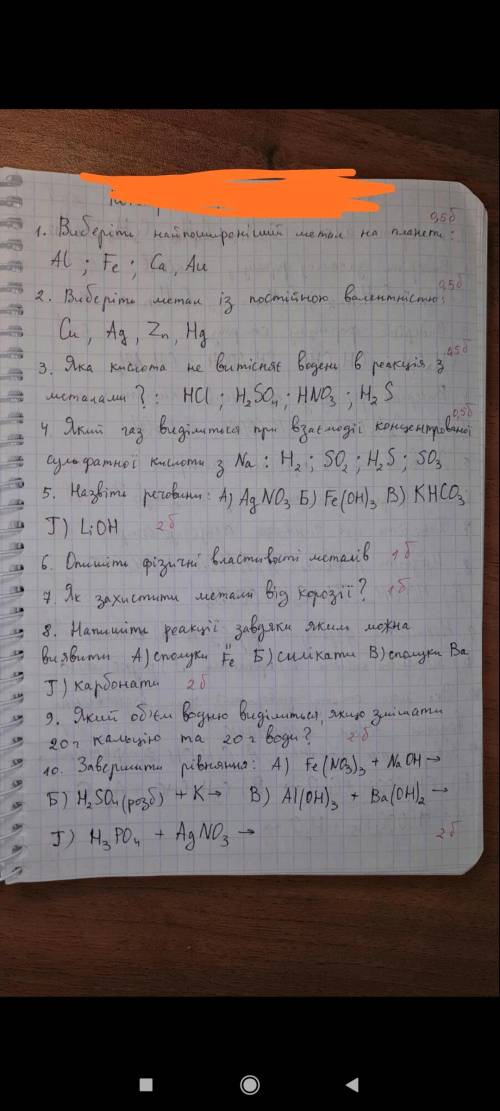 0,5б
1. Виберіть найпоширеніший метал на планеті:
Al ; Fe ; Ca, Au
0,5б
2. Виберіть метал із постійною валентністю:
Cu, Ag, Zn, Hg
0,5б
3. Яка кислота не витісняє водень в реакція з
металами? : HCl ; H₂SO₄ ; HNO₃ ; H₂S
0,5б
4. Який газ виділиться при взаємодії концентрованої
сульфатної кислоти з Na : H₂ ; SO₂ ; H₂S ; SO₃
5. Назвіть речовини: А) AgNO₃ Б) Fe(OH)₃ В) KHCO₃
Г) LiOH 2б
6. Опишіть фізичні властивості металів 1б
7. Як захистити метали від корозії? 1б
8. Напишіть реакції завдяки яким можна
виявити А) сполуки Fe Б) силікати В) сполуки Ba
Г) карбонати 2б
9. Який об'єм водню виділиться, якщо змішати
20 г кальцію та 20 г води? 2б
10. Завершити рівняння: А) Fe(NO₃)₃ + NaOH →
Б) H₂SO₄ (розб) + K → В) Al(OH)₃ + Ba(OH)₂ →
Г) H₃PO₄ + AgNO₃ → 2б